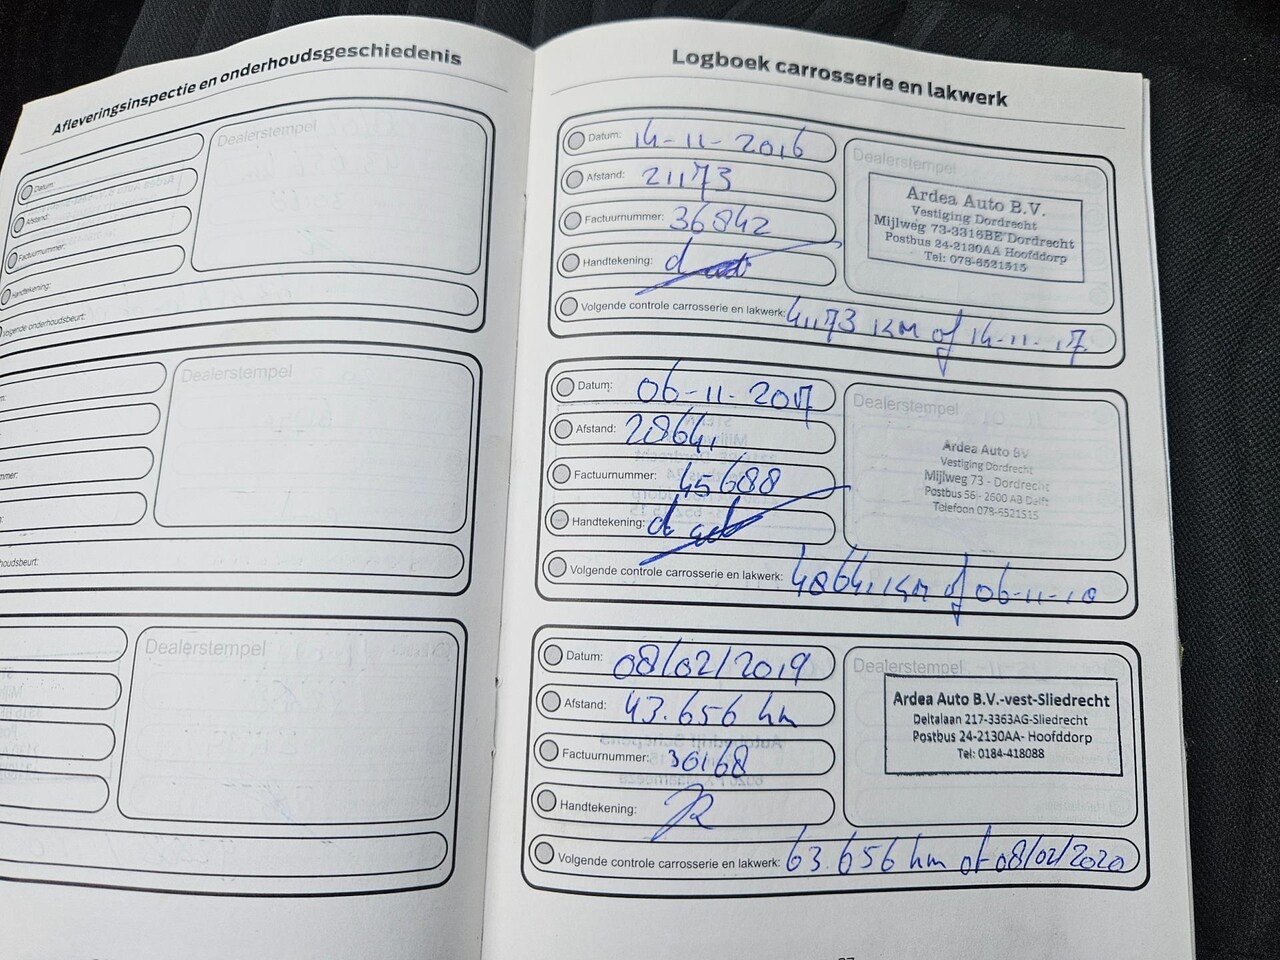 Afleveringsinspectie en onderhoudsgeschiedenis
Dealerstempel
Datum:
Afstand:
Factuurnummer:
Handtekening:
Volgende onderhoudsbeurt:
Dealerstempel
mmer:
houdsbeurt:
Dealerstempel
Logboek carrosserie en lakwerk
Datum: 14-11-2016
Afstand: 21173
Factuurnummer: 36842
Handtekening:
Volgende controle carrosserie en lakwerk: 41173 KM of 14-11-17
Dealerstempel
Ardea Auto B.V.
Vestiging Dordrecht
Mijlweg 73-3316BE Dordrecht
Postbus 24-2130AA Hoofddorp
Tel: 078-6521515
Datum: 06-11-2017
Afstand: 28641
Factuurnummer: 45688
Handtekening:
Volgende controle carrosserie en lakwerk: 48641 KM of 06-11-18
Dealerstempel
Ardea Auto BV
Vestiging Dordrecht
Mijlweg 73 - Dordrecht
Postbus 56 - 2600 AB Delft
Telefoon 078-6521515
Datum: 08/02/2019
Afstand: 43.656 km
Factuurnummer: 30168
Handtekening:
Volgende controle carrosserie en lakwerk: 63.656 km of 08/02/2020
Dealerstempel
Ardea Auto B.V.-vest-Sliedrecht
Deltalaan 217-3363AG-Sliedrecht
Postbus 24-2130AA- Hoofddorp
Tel: 0184-418088